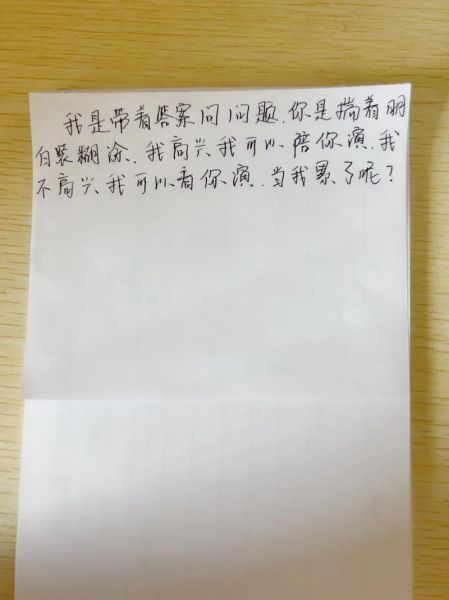 我是带着答案问问题.你是揣着明
白装糊涂.我高兴.我可以陪你演.我
不高兴.我可以看你演.当我累了呢？